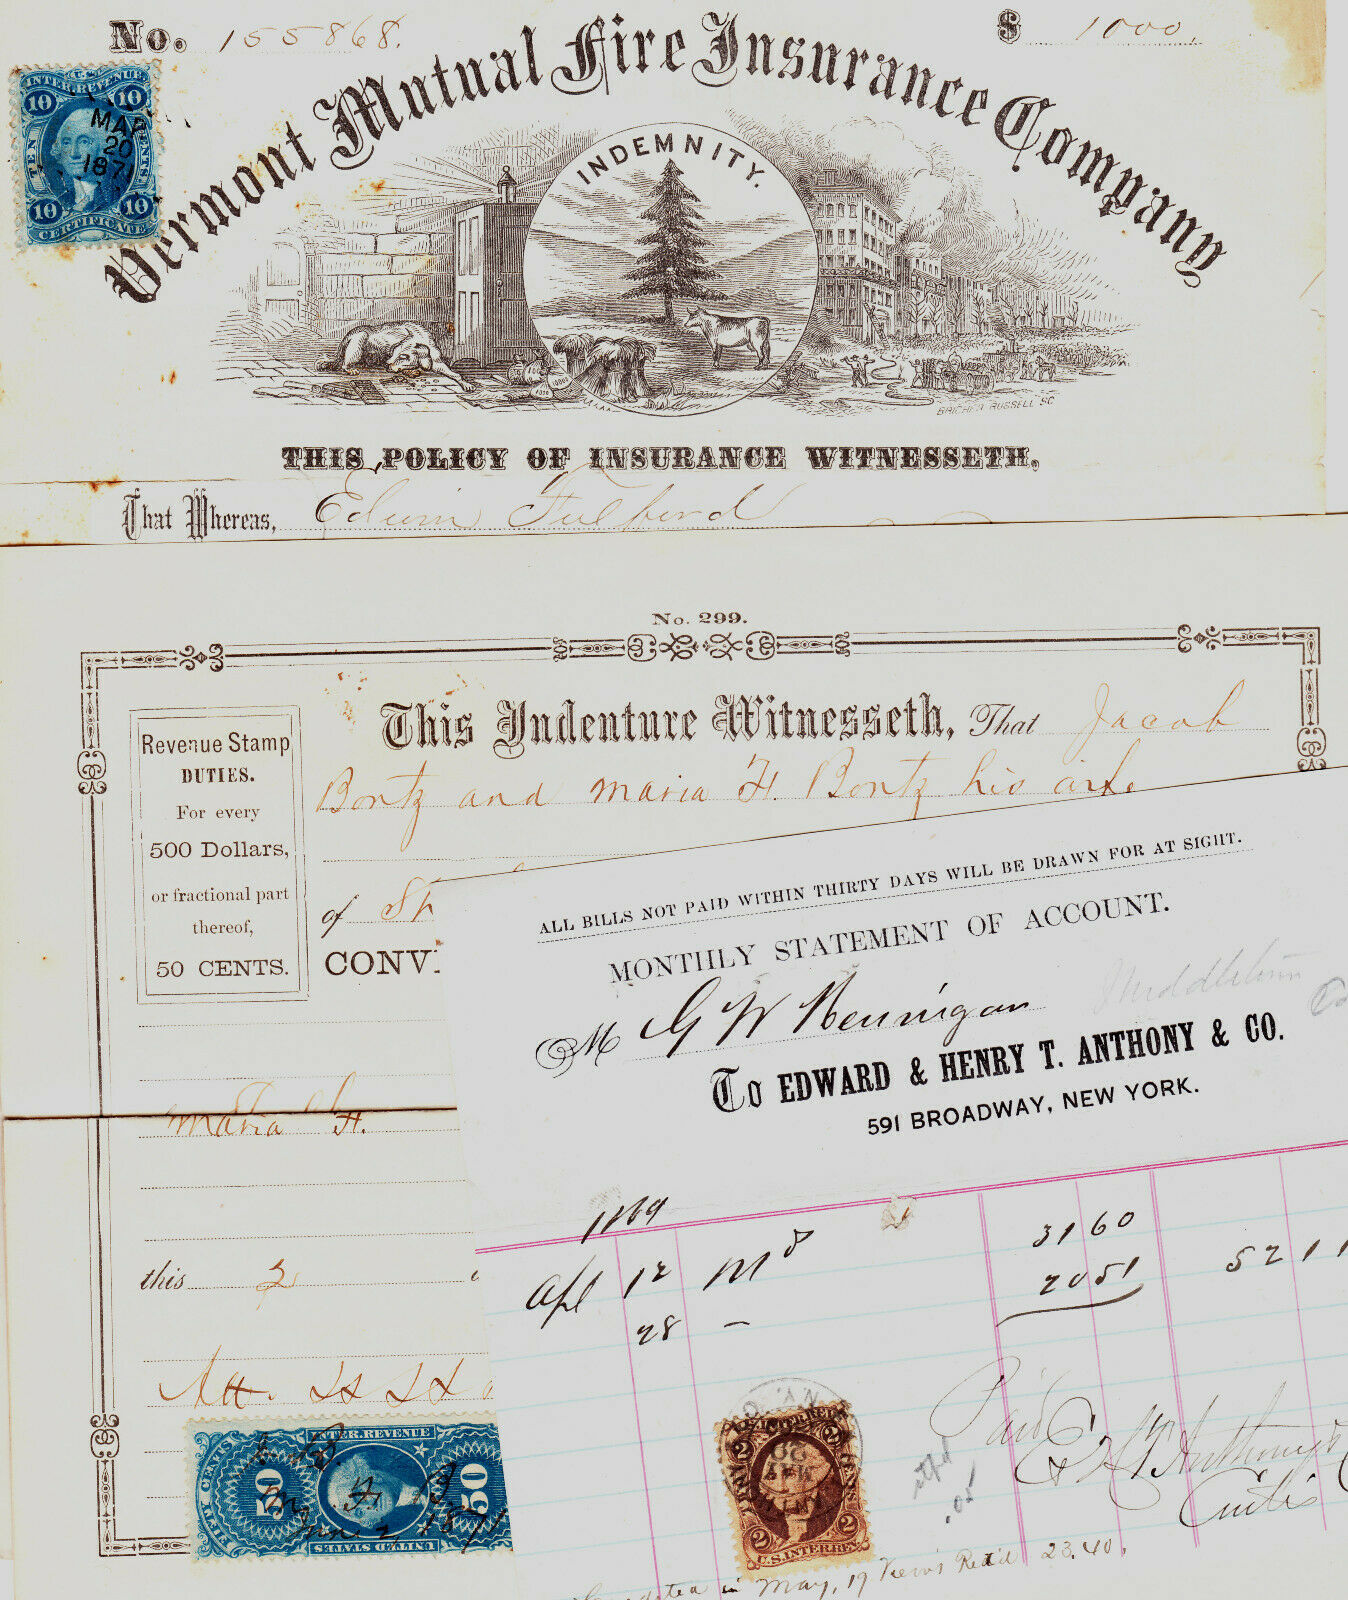 No. 155868. $ 1000.
Vermont Mutual Fire Insurance Company
INTER. REVENUE
10 10
MAY
20
1871
TEN CENTS.
10 10
CERTIFICATE
INDEMNITY.
BRICHER RUSSELL SC
THIS POLICY OF INSURANCE WITNESSETH,
That Whereas, Edwin
No. 299.
This Indenture Witnesseth, That Jacob
Bontz and Maria H. Bontz his wife
Revenue Stamp
DUTIES.
For every
500 Dollars,
or fractional part
thereof,
50 CENTS.
of
CONV
Maria H.
this 2
INTER. REVENUE
FIFTY CENTS
50 50
M H B
June 2 1871
UNITED STATES
ALL BILLS NOT PAID WITHIN THIRTY DAYS WILL BE DRAWN FOR AT SIGHT.
MONTHLY STATEMENT OF ACCOUNT.
M G W Hennigan
To EDWARD & HENRY T. ANTHONY & CO.
591 BROADWAY, NEW YORK.
1869
Apl 12 Md 31 60
28 — 20 51 52 11
Paid
E & H T Anthony &
Curtis
U.S. INTER. REV.
2 2
MAY
20
2 2
U.S. INTER. REV.
.05
in May, 19 Views Ret'd 23.40.